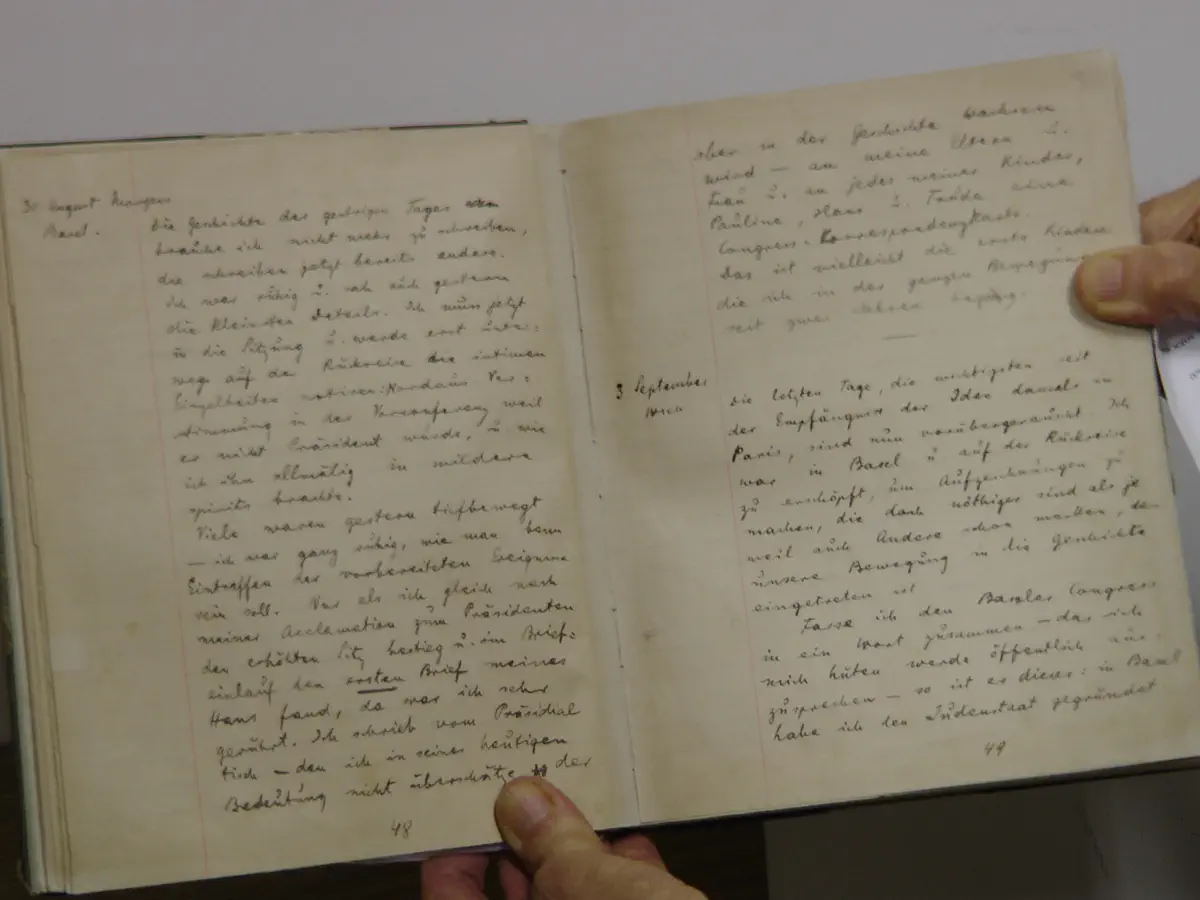 30 August Morgens
Basel.
Die Geschichte des gestrigen Tages
brauche ich nicht mehr zu schreiben,
die schreiben jetzt bereits andere.
Ich war ruhig u. sah auch gestern
die kleinsten Details. Ich muss jetzt
in die Sitzung u. werde erst unter-
wegs auf der Rückreise die intimen
Einzelheiten notiren: Nordaus Ver-
stimmung in der Vorconferenz weil
er nicht Präsident wurde, u. wie
ich ihn allmälig in mildere
spirits brachte.
Viele waren gestern tiefbewegt
— ich war ganz ruhig, wie man beim
Eintreffen der vorbereiteten Ereignisse
sein soll. Nur als ich gleich nach
meiner Acclamation zum Präsidenten
den erhöhten Sitz bestieg u. im Brief-
einlauf den ersten Brief meines
Hans fand, da war ich sehr
gerührt. Ich schrieb vom Präsidial
tisch — den ich in seiner heutigen
Bedeutung nicht überschätze der
48
aber in der Geschichte wachsen
wird — an meine Eltern u.
Frau u. an jedes meiner Kinder,
Pauline, Hans u. Trude eine
Congress-Korrespondenzkarte.
Das ist vielleicht die erste Kinderei
die ich in der ganzen Bewegung
seit zwei Jahren beging.
3 September
Wien
Die letzten Tage, die wichtigsten seit
der Empfängniss der Idee damals in
Paris, sind nun vorübergerauscht. Ich
war in Basel u auf der Rückreise
zu erschöpft, um Aufzeichnungen zu
machen, die doch nöthiger sind als je
weil auch Andere schon merken, dass
unsere Bewegung in die Geschichte
eingetreten ist
Fasse ich den Baseler Congress
in ein Wort zusammen — das ich
mich hüten werde öffentlich aus-
zusprechen — so ist es dieses: in Basel
habe ich den Judenstaat gegründet
49